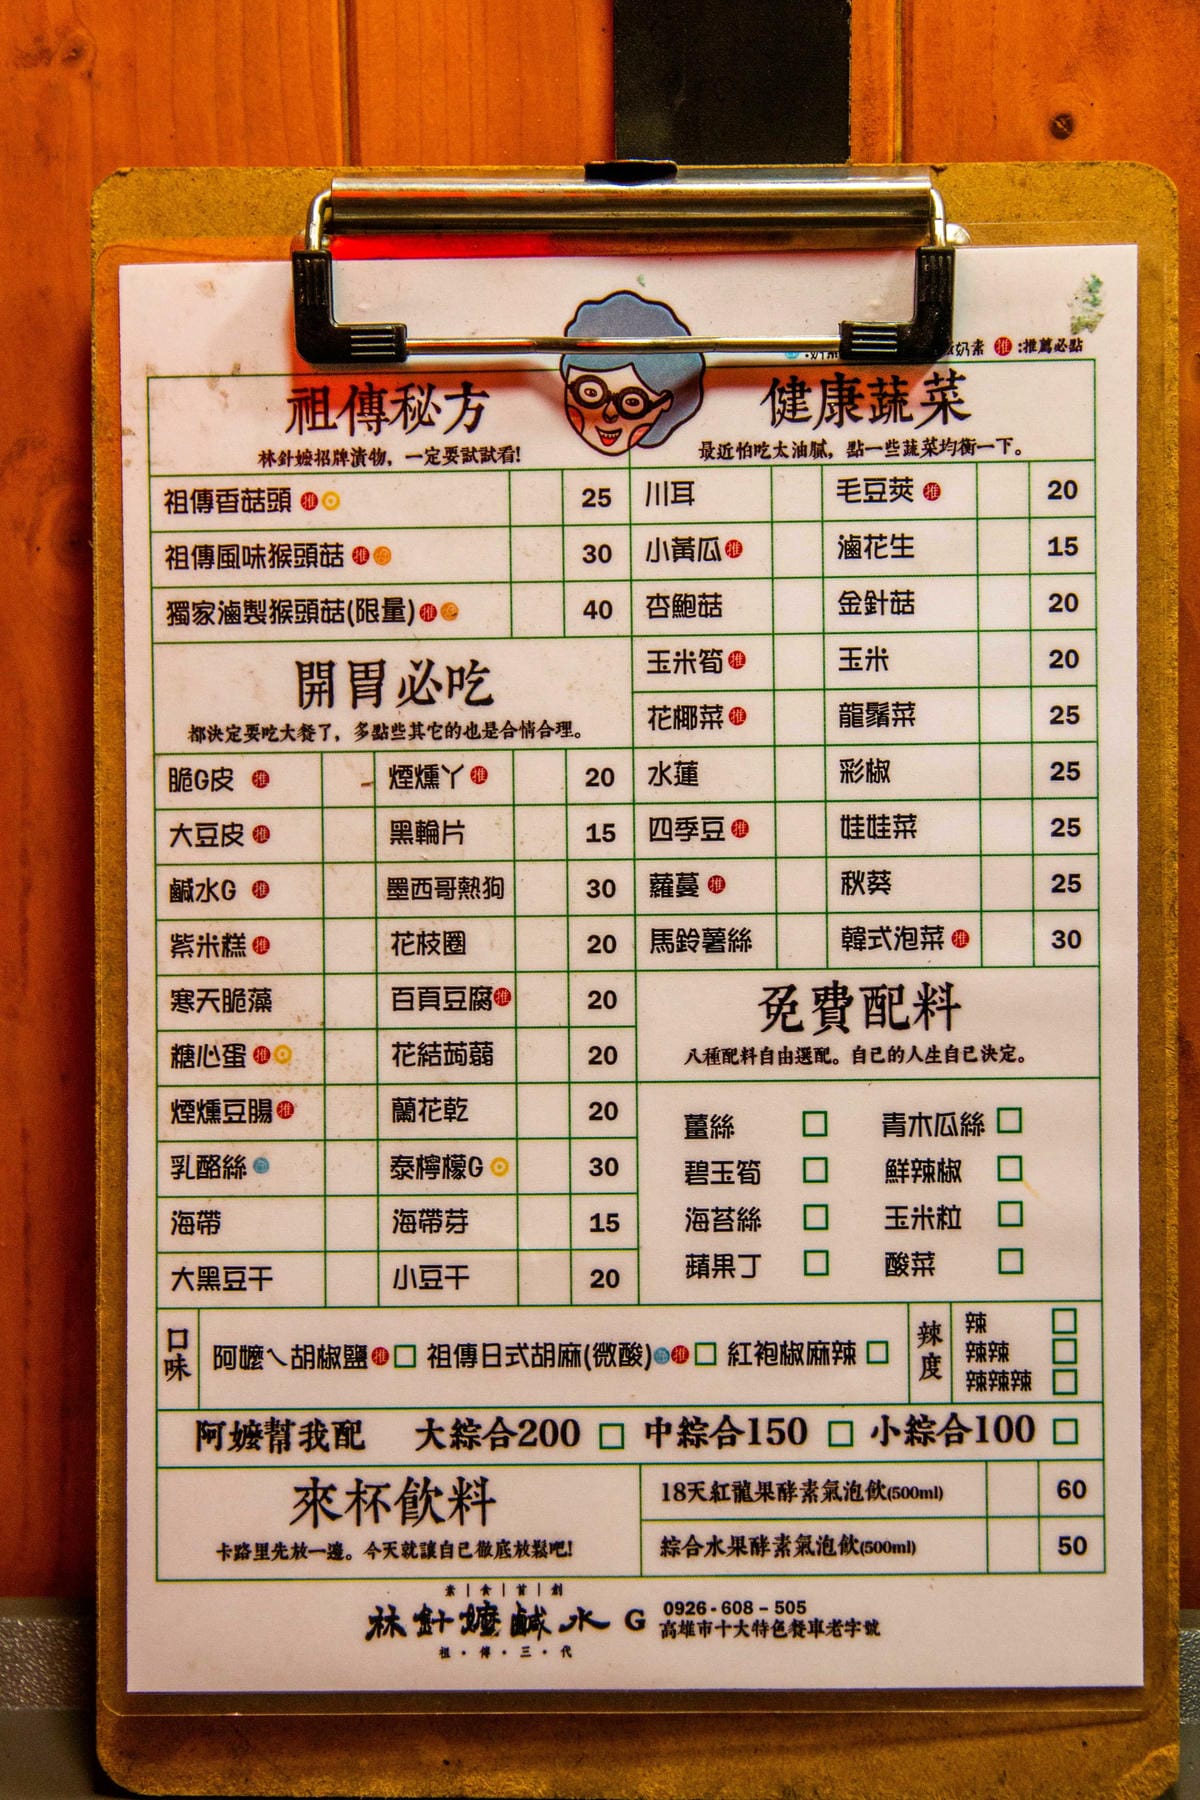 奶素 推 :推薦必點
祖傳秘方
林針嬤招牌漬物，一定要試試看!
祖傳香菇頭 推 25
祖傳風味猴頭菇 推 30
獨家滷製猴頭菇(限量) 推 40
開胃必吃
都決定要吃大餐了，多點些其它的也是合情合理。
脆G皮 推 煙燻丫 推 20
大豆皮 推 黑輪片 15
鹹水G 推 墨西哥熱狗 30
紫米糕 推 花枝圈 20
寒天脆藻 百頁豆腐 推 20
糖心蛋 推 花結蒟蒻 20
煙燻豆腸 推 蘭花乾 20
乳酪絲 泰檸檬G 30
海帶 海帶芽 15
大黑豆干 小豆干 20
健康蔬菜
最近怕吃太油膩，點一些蔬菜均衡一下。
川耳 毛豆莢 推 20
小黃瓜 推 滷花生 15
杏鮑菇 金針菇 20
玉米筍 推 玉米 20
花椰菜 推 龍鬚菜 25
水蓮 彩椒 25
四季豆 推 娃娃菜 25
蘿蔓 推 秋葵 25
馬鈴薯絲 韓式泡菜 推 30
免費配料
八種配料自由選配。自己的人生自己決定。
薑絲 青木瓜絲
碧玉筍 鮮辣椒
海苔絲 玉米粒
蘋果丁 酸菜
口味 阿嬤ㄟ胡椒鹽 推 祖傳日式胡麻(微酸) 推 紅袍椒麻辣
辣度
辣
辣辣
辣辣辣
阿嬤幫我配 大綜合200 中綜合150 小綜合100
來杯飲料
卡路里先放一邊。今天就讓自己徹底放鬆吧!
18天紅龍果酵素氣泡飲(500ml) 60
綜合水果酵素氣泡飲(500ml) 50
素|食|首|創
林針嬤鹹水G
祖・傳・三・代
0926-608-505
高雄市十大特色餐車老字號